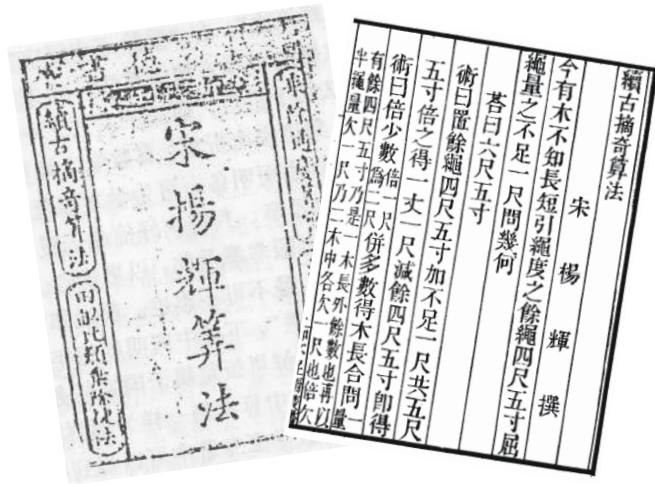 宋楊輝算法
續古摘奇算法
田畝比類乘除捷法
續古摘奇算法
宋楊輝撰
今有木不知長短引繩度之餘繩四尺五寸屈
繩量之不足一尺問幾何
荅曰六尺五寸
術曰置餘繩四尺五寸加不足一尺共五尺
五寸倍之得一丈一尺減餘四尺五寸卽得
術曰倍少數倍一尺爲二尺併多數得木長合問一量
有餘四尺五寸乃是一木長外餘數也再以
半繩量欠一尺乃二木中各欠一尺也倍欠